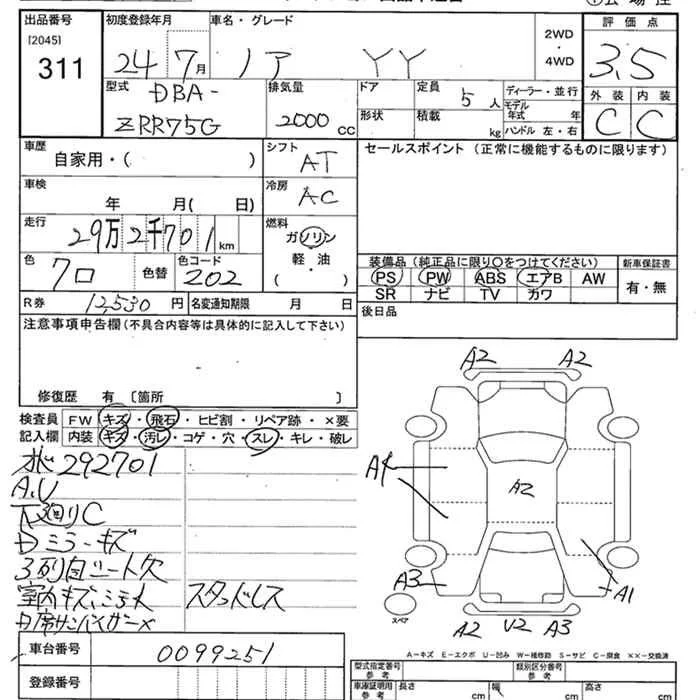 出品番号 初度登録年月 車名・グレード 2WD・4WD 評価点
[2045]
311 24 7月 ノア YY 3.5
型式 排気量 ドア 定員 ディーラー・並行 外装 内装
DBA- 5人 モデル年式 年
ZRR75G 2000cc 形状 積載 kg ハンドル 左・右 C C
車歴 シフト セールスポイント (正常に機能するものに限ります)
自家用・( ) AT
車検 冷房
年 月( 日) AC
走行 燃料
29万2千701km ガソリン・軽油・( )
色 色替 色コード 装備品(純正品に限り○をつけてください) 新車保証書
クロ 202 PS PW ABS エアB AW 有・無
SR ナビ TV カワ
R券 12,530円 名変通知期限 月 日 後日品
注意事項申告欄(不具合内容等は具体的に記入して下さい)
修復歴 有 〔箇所 〕
検査員 FW キズ・飛石・ヒビ割・リペア跡・×要
記入欄 内装 キズ・汚レ・コゲ・穴・スレ・キレ・破レ
292701
A.V
下廻りC
Dミラーキズ
3列目シート欠
室内キズ、シミ大
スタッドレス
A2 A2
A1
A2
A3 A1
スペア
A2 U2 A3
車台番号 0099251
登録番号
A-キズ E-エクボ U-凹み W-補修跡 S-サビ C-腐食 ××-交換済
型式指定番号 類別区分番号
参考 参考
車庫証明用 長さ cm 幅 cm 高さ cm
参考